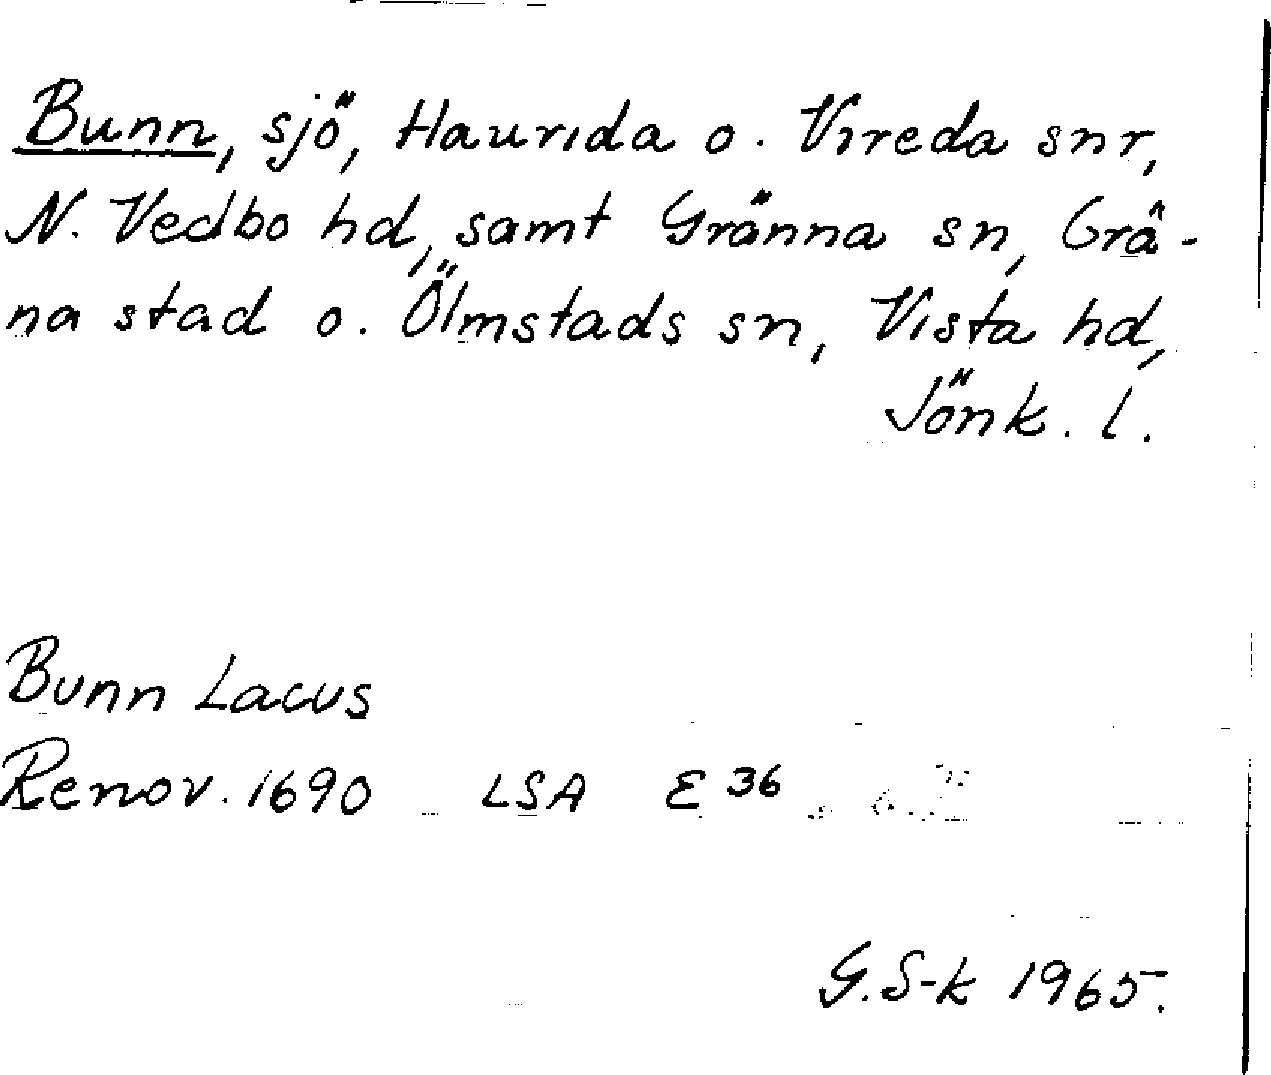 Bunn, sjö, Haurida o. Vireda snr,
N. Vedbo hd, samt Gränna sn, Grä-
na stad o. Ölmstads sn, Vista hd,
Jönk. l.
Bunn Lacus
Renov. 1690 LSA E 36
G. S-k 1965.